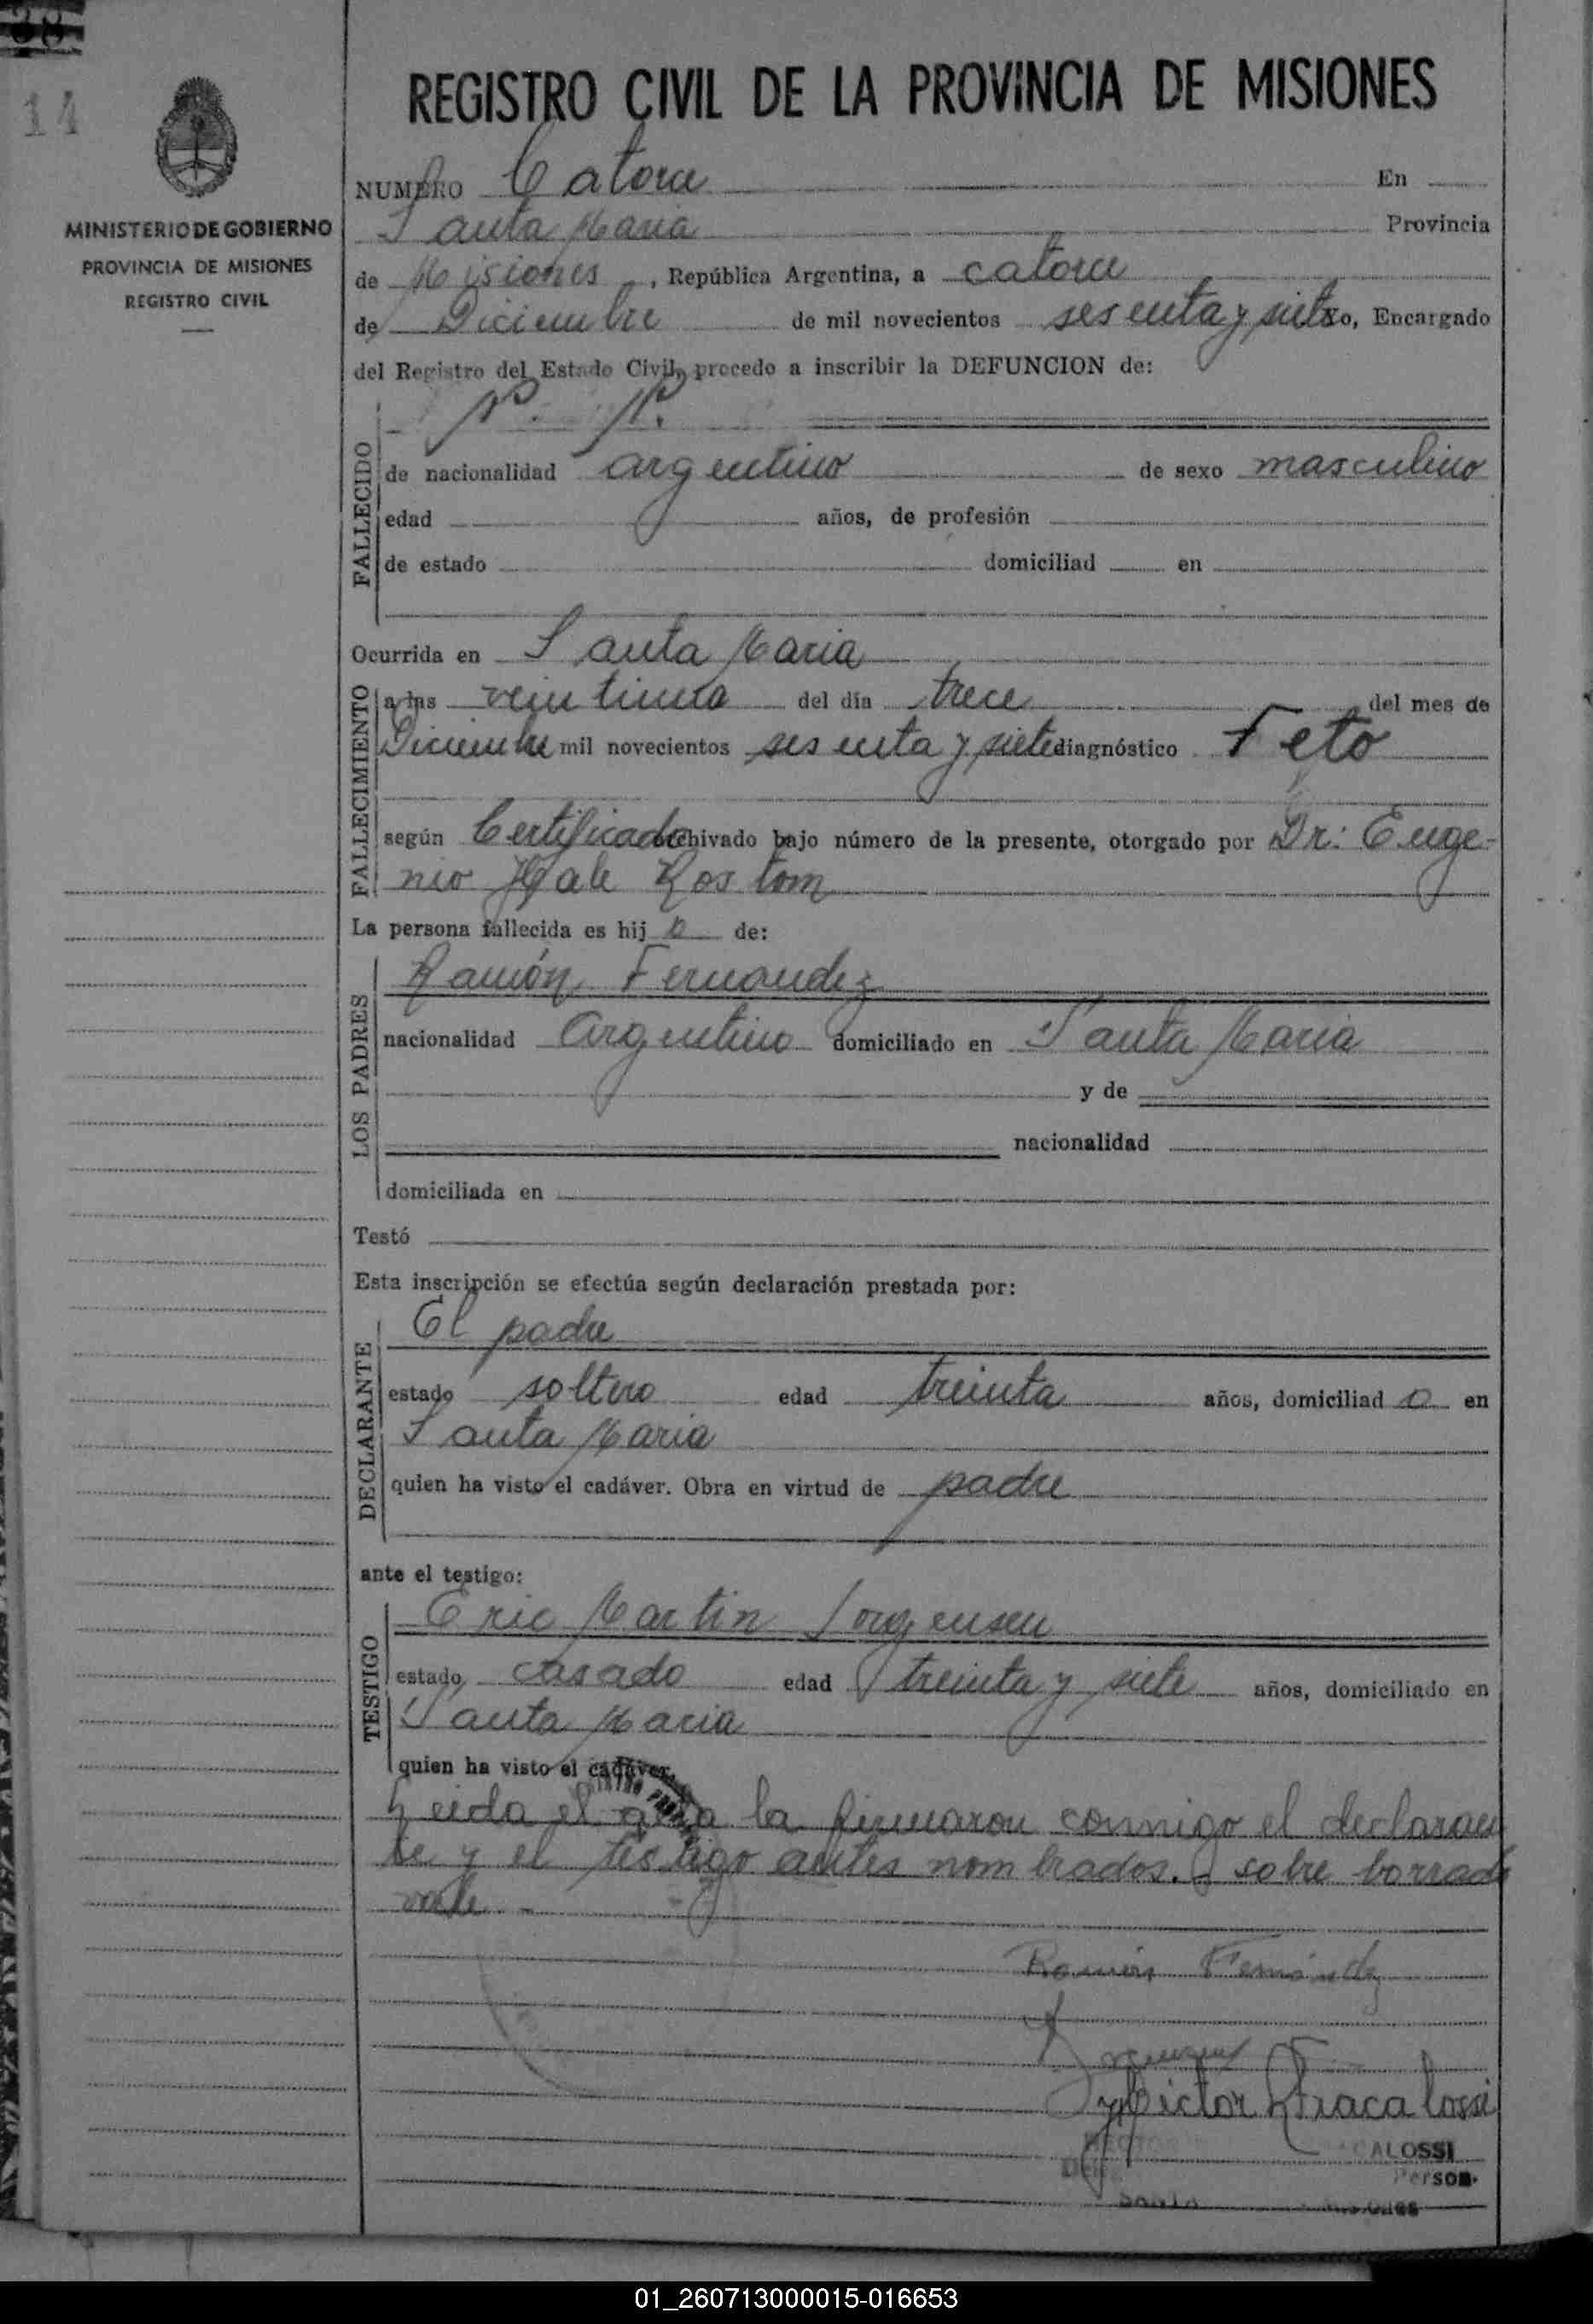 14
MINISTERIO DE GOBIERNO
PROVINCIA DE MISIONES
REGISTRO CIVIL
REGISTRO CIVIL DE LA PROVINCIA DE MISIONES
NUMERO Catorce En
Santa Maria Provincia
de Misiones, República Argentina, a catorce
de Diciembre de mil novecientos sesenta y siete yo, Encargado
del Registro del Estado Civil, procedo a inscribir la DEFUNCION de:
N. N.
FALLECIDO
de nacionalidad argentino de sexo masculino
edad años, de profesión
de estado domiciliad en
Ocurrida en Santa Maria
FALLECIMIENTO
a las veintiuna del día trece del mes de
Diciembre mil novecientos sesenta y siete diagnóstico Feto
según Certificado archivado bajo número de la presente, otorgado por Dr: Euge-
nio Kostom
La persona fallecida es hij o de:
LOS PADRES
Ramón Fernandez
nacionalidad Argentino domiciliado en Santa Maria
y de
nacionalidad
domiciliada en
Testó
Esta inscripción se efectúa según declaración prestada por:
DECLARANTE
El padre
estado soltero edad treinta años, domiciliad o en
Santa Maria
quien ha visto el cadáver. Obra en virtud de padre
ante el testigo:
TESTIGO
Eric Martin Jorgensen
estado casado edad treinta y siete años, domiciliado en
Santa Maria
quien ha visto el cadáver.
Leida el acta la firmaron conmigo el declaran
te y el testigo antes nombrados. - sobre borrado
vale -
Ramón Fernández
Victor Fracalossi
CALOSSI
Person.
SANTA
01_260713000015-016653